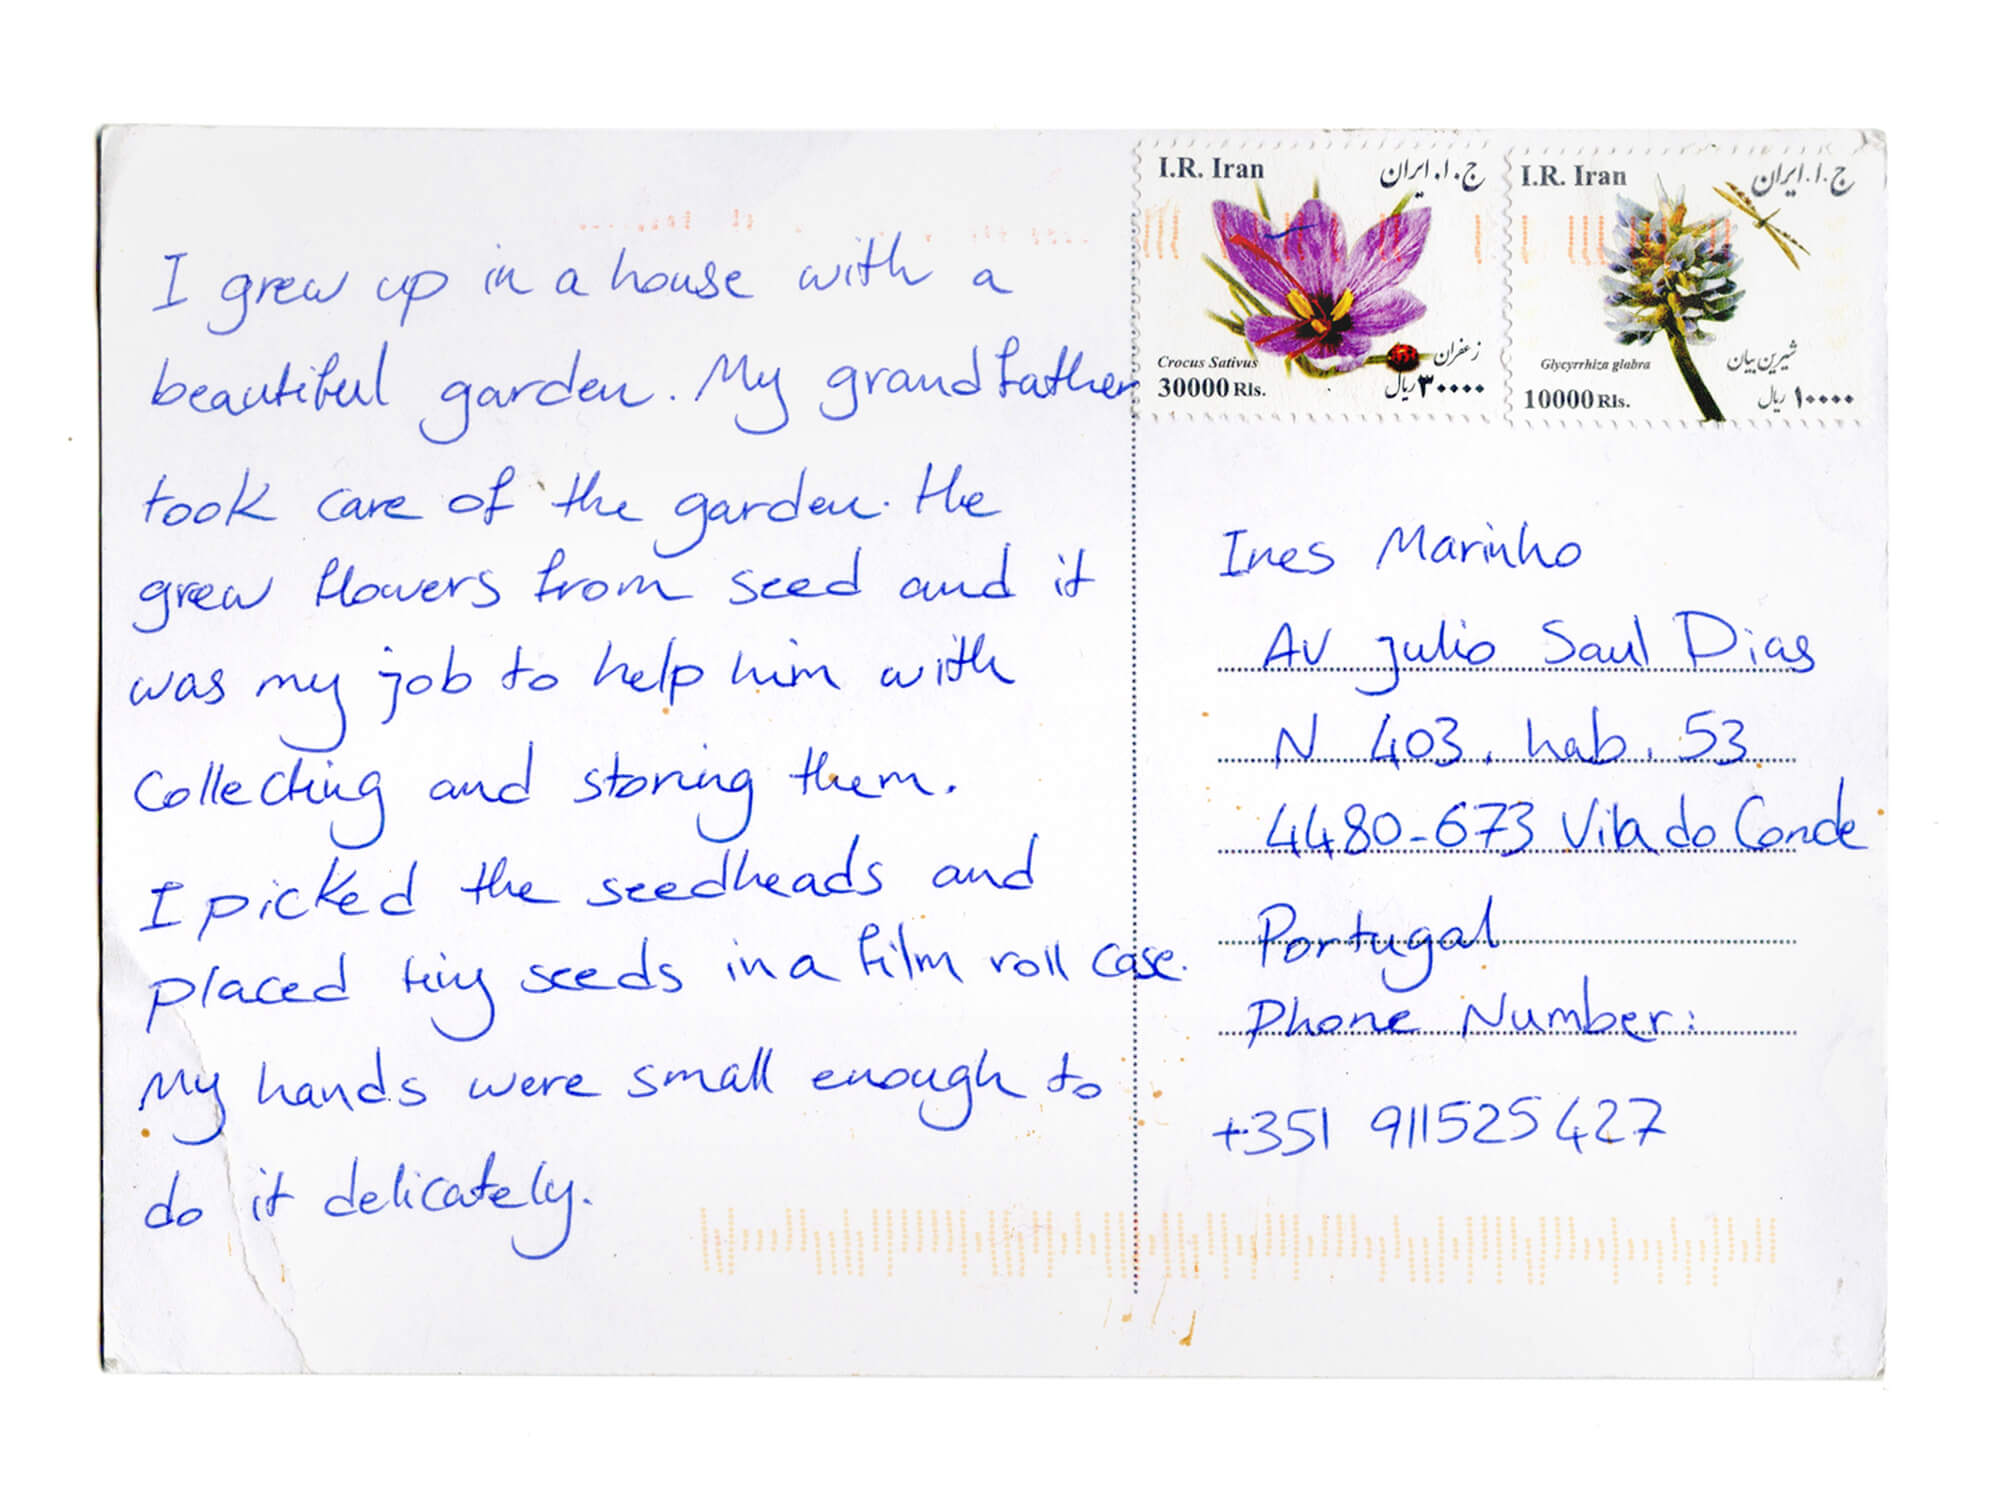 I grew up in a house with a
beautiful garden. My grandfather
took care of the garden. He
grew flowers from seed and it
was my job to help him with
collecting and storing them.
I picked the seedheads and
placed tiny seeds in a film roll case.
My hands were small enough to
do it delicately.
I.R. Iran
ج.ا.ایران
Crocus Sativus
زعفران
30000 Rls.
۳۰۰۰۰ ریال
I.R. Iran
ج.ا.ایران
Glycyrrhiza glabra
شیرین بیان
10000 Rls.
۱۰۰۰۰ ریال
Ines Marinho
Av julio Saul Dias
N 403, hab. 53
4480-673 Vila do Conde
Portugal
Phone Number:
+351 911525427